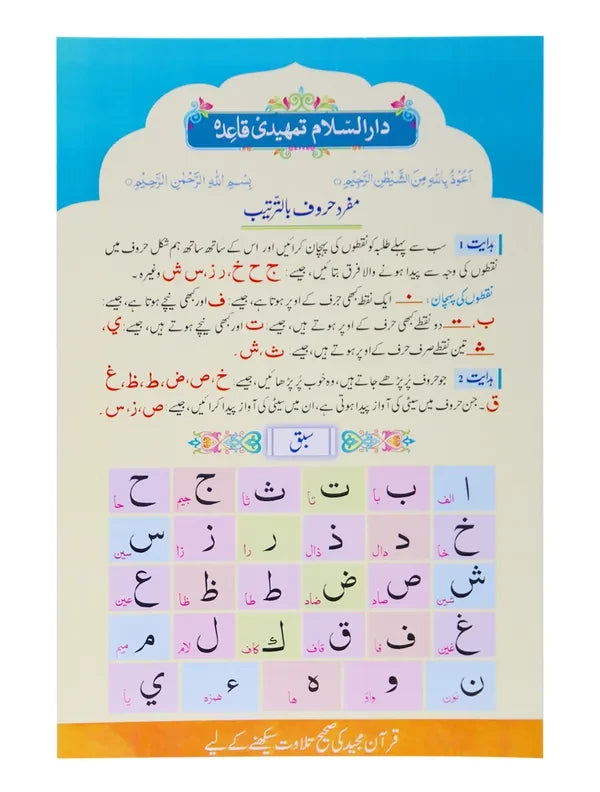 دارالسّلام تمہیدی قاعدہ
اَعُوْذُ بِاللّٰهِ مِنَ الشَّيْطٰنِ الرَّجِيْمِ ○ بِسْمِ اللّٰهِ الرَّحْمٰنِ الرَّحِيْمِ ○
مفرد حروف بالترتیب
ہدایت 1 سب سے پہلے طلبہ کو نقطوں کی پہچان کرائیں اور اس کے ساتھ ساتھ ہم شکل حروف میں
نقطوں کی وجہ سے پیدا ہونے والا فرق بتائیں، جیسے: ج ح خ، ر ز، س ش وغیرہ۔
نقطوں کی پہچان: ایک نقطہ کبھی حرف کے اوپر ہوتا ہے، جیسے: ف اور کبھی نیچے ہوتا ہے، جیسے:
ب، دو نقطے کبھی حرف کے اوپر ہوتے ہیں، جیسے: ت اور کبھی نیچے ہوتے ہیں، جیسے: ي،
تین نقطے صرف حرف کے اوپر ہوتے ہیں، جیسے: ث، ش۔
ہدایت 2 جو حروف پُر پڑھے جاتے ہیں، وہ خوب پُر پڑھائیں، جیسے: خ، ص، ض، ط، ظ، غ
ق۔ جن حروف میں سیٹی کی آواز پیدا ہوتی ہے، ان میں سیٹی کی آواز پیدا کرائیں، جیسے: ص، ز، س۔
سبق
ا الف ب با ت تا ث ثا ج جیم ح حا
خ خا د دال ذ ذال ر را ز زا س سین
ش شین ص صاد ض ضاد ط طا ظ ظا ع عین
غ غین ف فا ق قاف ك کاف ل لام م میم
ن نون و واؤ ہ ھا ء ھمزہ ي یا
قرآن مجید کی صحیح تلاوت سیکھنے کے لیے